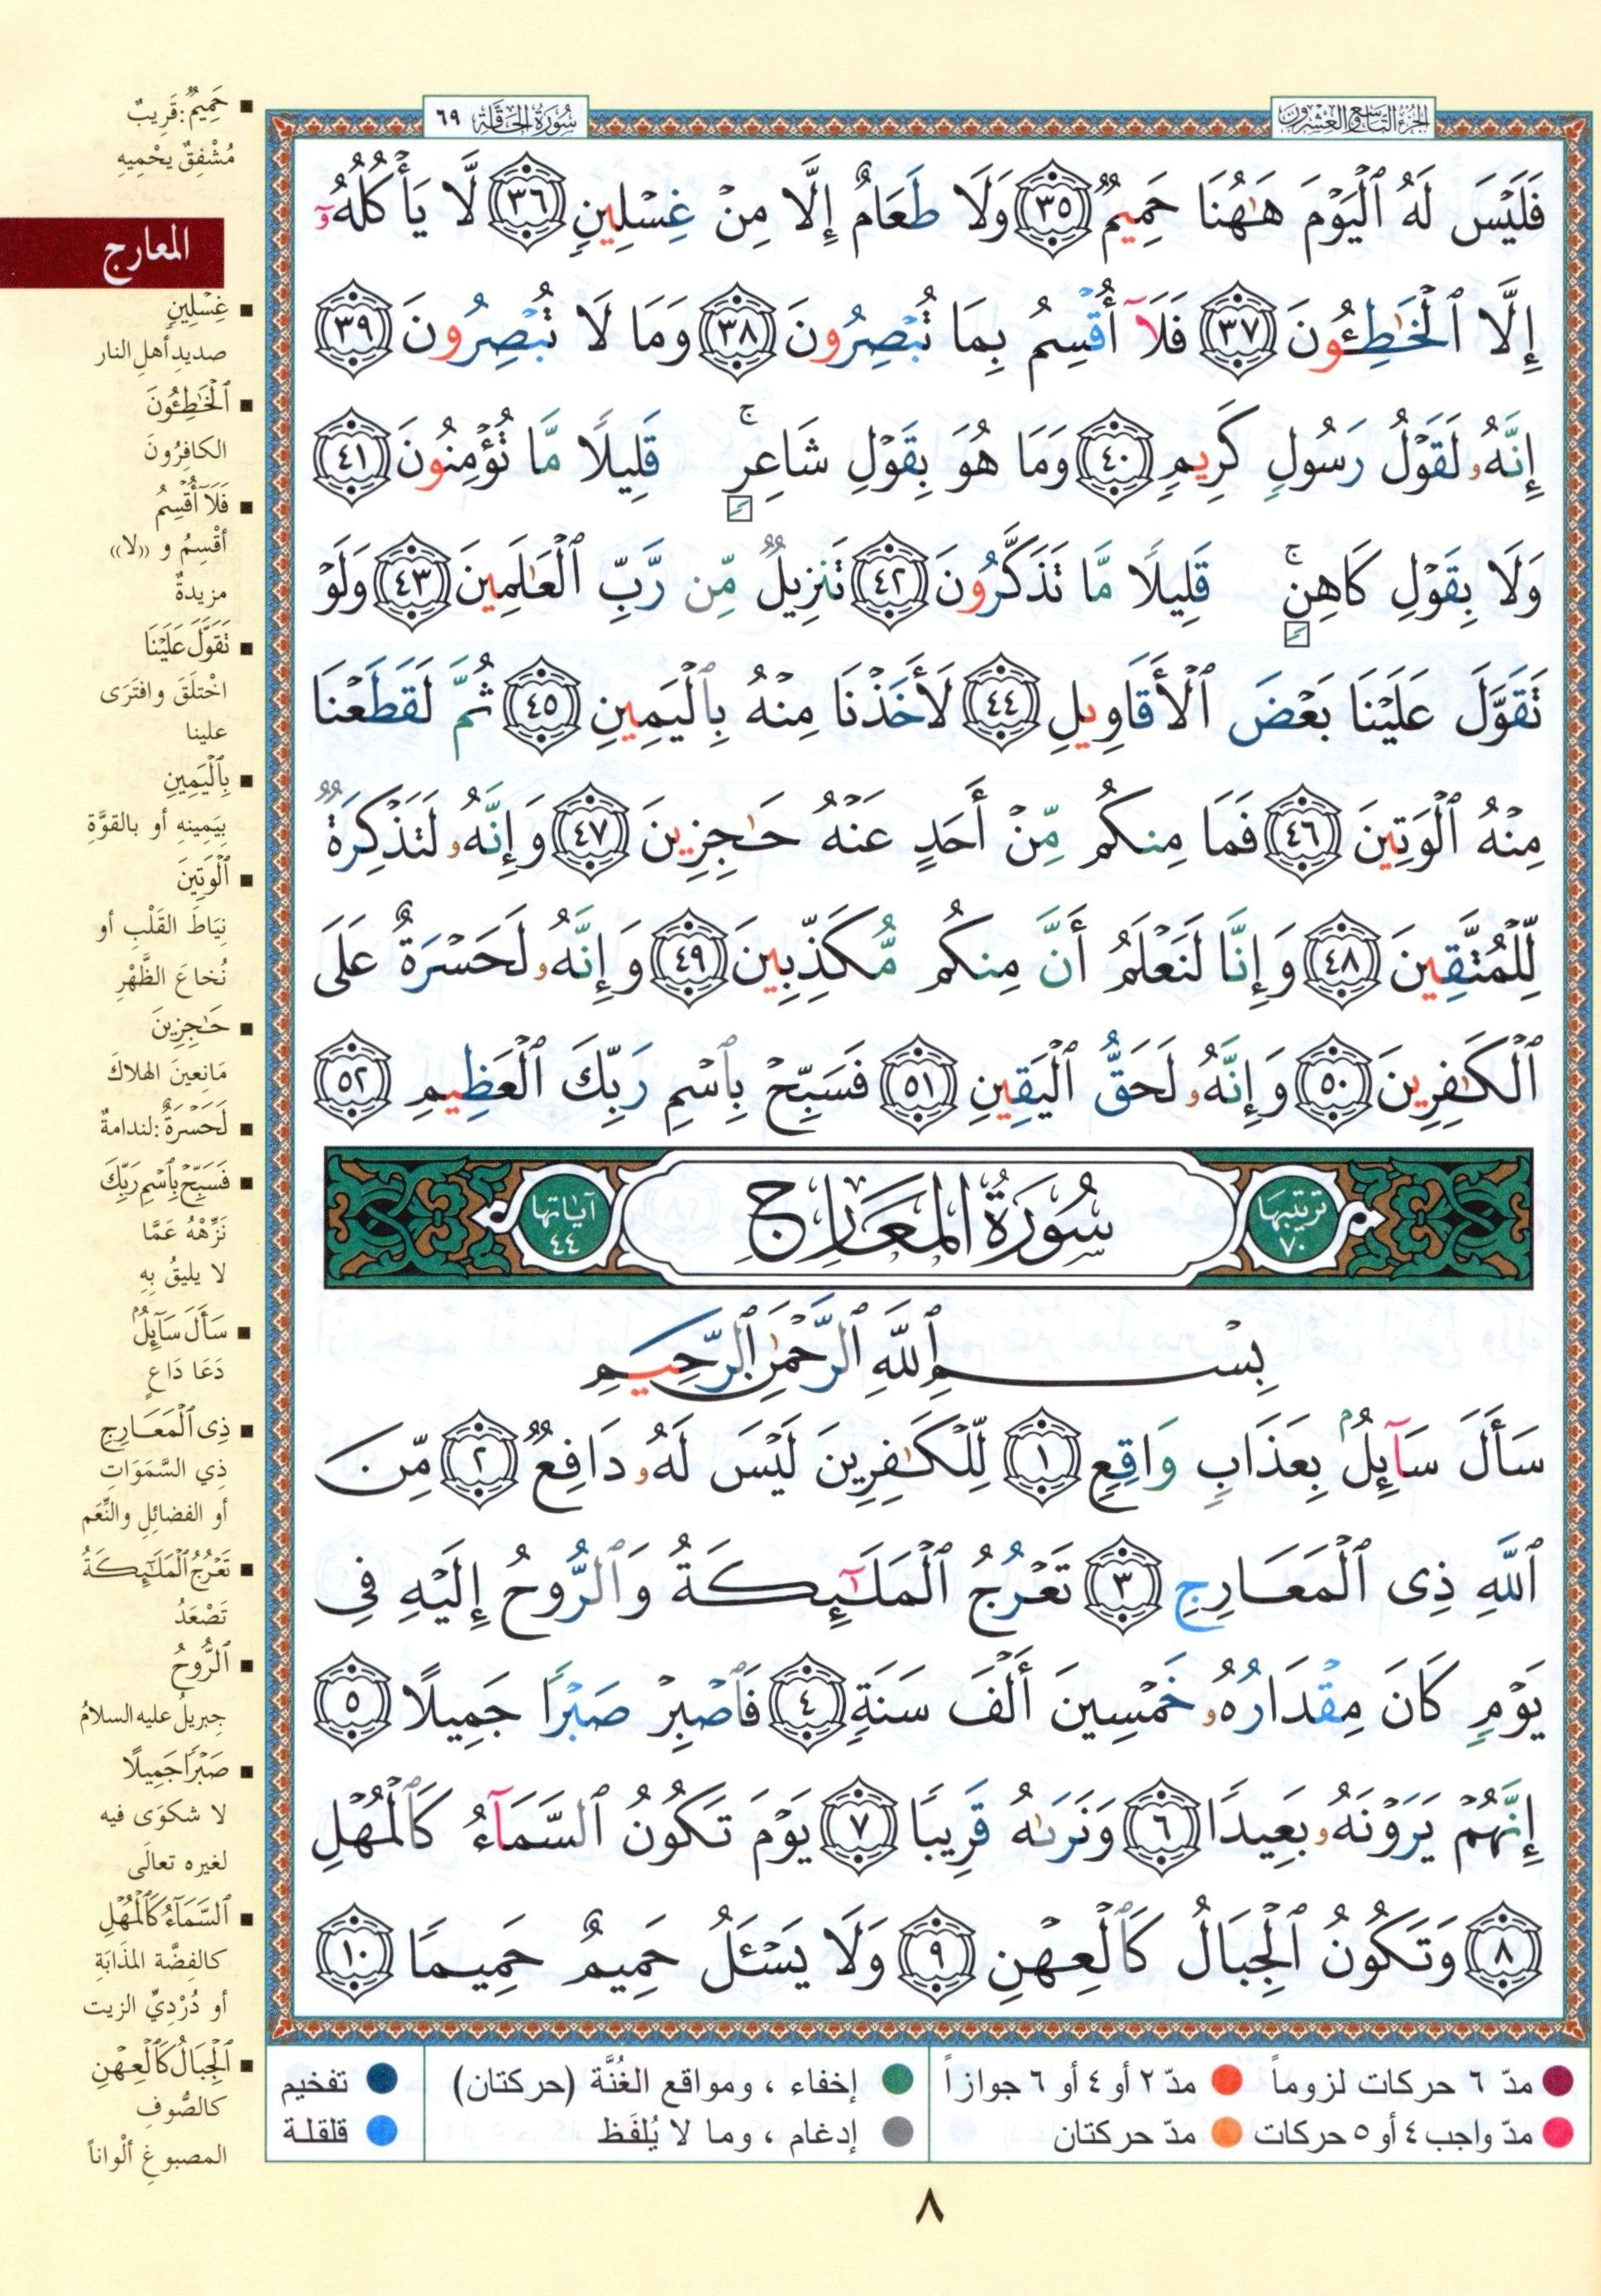 الجزء التاسع والعشرون
سورة الحاقة ٦٩
فَلَيْسَ لَهُ ٱلْيَوْمَ هَٰهُنَا حَمِيمٌ ٣٥ وَلَا طَعَامٌ إِلَّا مِنْ غِسْلِينٍ ٣٦ لَّا يَأْكُلُهُۥٓ
إِلَّا ٱلْخَٰطِـُٔونَ ٣٧ فَلَآ أُقْسِمُ بِمَا تُبْصِرُونَ ٣٨ وَمَا لَا تُبْصِرُونَ ٣٩
إِنَّهُۥ لَقَوْلُ رَسُولٍ كَرِيمٍ ٤٠ وَمَا هُوَ بِقَوْلِ شَاعِرٍ ۚ قَلِيلًا مَّا تُؤْمِنُونَ ٤١
وَلَا بِقَوْلِ كَاهِنٍ ۚ قَلِيلًا مَّا تَذَكَّرُونَ ٤٢ تَنزِيلٌ مِّن رَّبِّ ٱلْعَٰلَمِينَ ٤٣ وَلَوْ
تَقَوَّلَ عَلَيْنَا بَعْضَ ٱلْأَقَاوِيلِ ٤٤ لَأَخَذْنَا مِنْهُ بِٱلْيَمِينِ ٤٥ ثُمَّ لَقَطَعْنَا
مِنْهُ ٱلْوَتِينَ ٤٦ فَمَا مِنكُم مِّنْ أَحَدٍ عَنْهُ حَٰجِزِينَ ٤٧ وَإِنَّهُۥ لَتَذْكِرَةٌ
لِّلْمُتَّقِينَ ٤٨ وَإِنَّا لَنَعْلَمُ أَنَّ مِنكُم مُّكَذِّبِينَ ٤٩ وَإِنَّهُۥ لَحَسْرَةٌ عَلَى
ٱلْكَٰفِرِينَ ٥٠ وَإِنَّهُۥ لَحَقُّ ٱلْيَقِينِ ٥١ فَسَبِّحْ بِٱسْمِ رَبِّكَ ٱلْعَظِيمِ ٥٢
ترتيبها ٧٠ سُورَةُ المَعَارِجِ آياتها ٤٤
بِسْمِ ٱللَّهِ ٱلرَّحْمَٰنِ ٱلرَّحِيمِ
سَأَلَ سَآئِلٌۢ بِعَذَابٍ وَاقِعٍ ١ لِّلْكَٰفِرِينَ لَيْسَ لَهُۥ دَافِعٌ ٢ مِّنَ
ٱللَّهِ ذِى ٱلْمَعَارِجِ ٣ تَعْرُجُ ٱلْمَلَٰٓئِكَةُ وَٱلرُّوحُ إِلَيْهِ فِى
يَوْمٍ كَانَ مِقْدَارُهُۥ خَمْسِينَ أَلْفَ سَنَةٍ ٤ فَٱصْبِرْ صَبْرًا جَمِيلًا ٥
إِنَّهُمْ يَرَوْنَهُۥ بَعِيدًا ٦ وَنَرَىٰهُ قَرِيبًا ٧ يَوْمَ تَكُونُ ٱلسَّمَآءُ كَٱلْمُهْلِ
٨ وَتَكُونُ ٱلْجِبَالُ كَٱلْعِهْنِ ٩ وَلَا يَسْـَٔلُ حَمِيمٌ حَمِيمًا ١٠
حَمِيمٌ: قَرِيبٌ
مُشْفِقٌ يَحْمِيهِ
المعارج
غِسْلِينٍ
صديدِ أهلِ النار
ٱلْخَٰطِـُٔونَ
الكافِرُونَ
فَلَآ أُقْسِمُ
أقْسِمُ و «لا»
مزيدةٌ
تَقَوَّلَ عَلَيْنَا
اخْتلَقَ وافتَرَى
علينا
بِٱلْيَمِينِ
بيَمِينِهِ أو بالقوَّةِ
ٱلْوَتِينَ
نِيَاطَ القَلْبِ أو
نُخاعَ الظَّهْرِ
حَٰجِزِينَ
مَانِعِينَ الهلاكَ
لَحَسْرَةٌ: لندامةٌ
فَسَبِّحْ بِٱسْمِ رَبِّكَ
نَزِّهْهُ عَمَّا
لا يليقُ بِهِ
سَأَلَ سَآئِلٌۢ
دَعَا دَاعٍ
ذِى ٱلْمَعَارِجِ
ذِي السَّمَوَاتِ
أو الفضائِلِ والنِّعَم
تَعْرُجُ ٱلْمَلَٰٓئِكَةُ
تَصْعَدُ
ٱلرُّوحُ
جِبرِيلُ عليه السلامُ
صَبْرًا جَمِيلًا
لا شكوَى فيه
لغيره تعالَى
ٱلسَّمَآءُ كَٱلْمُهْلِ
كالفِضَّة المذَابَةِ
أو دُرْدِيِّ الزيت
ٱلْجِبَالُ كَٱلْعِهْنِ
كالصُّوفِ
المصبوغِ ألْواناً
مدّ ٦ حركات لزوماً مدّ ٢ أو ٤ أو ٦ جوازاً إخفاء ، ومواقع الغُنَّة (حركتان) تفخيم
مدّ واجب ٤ أو ٥ حركات مدّ حركتان إدغام ، وما لا يُلفَظ قلقلة
٨